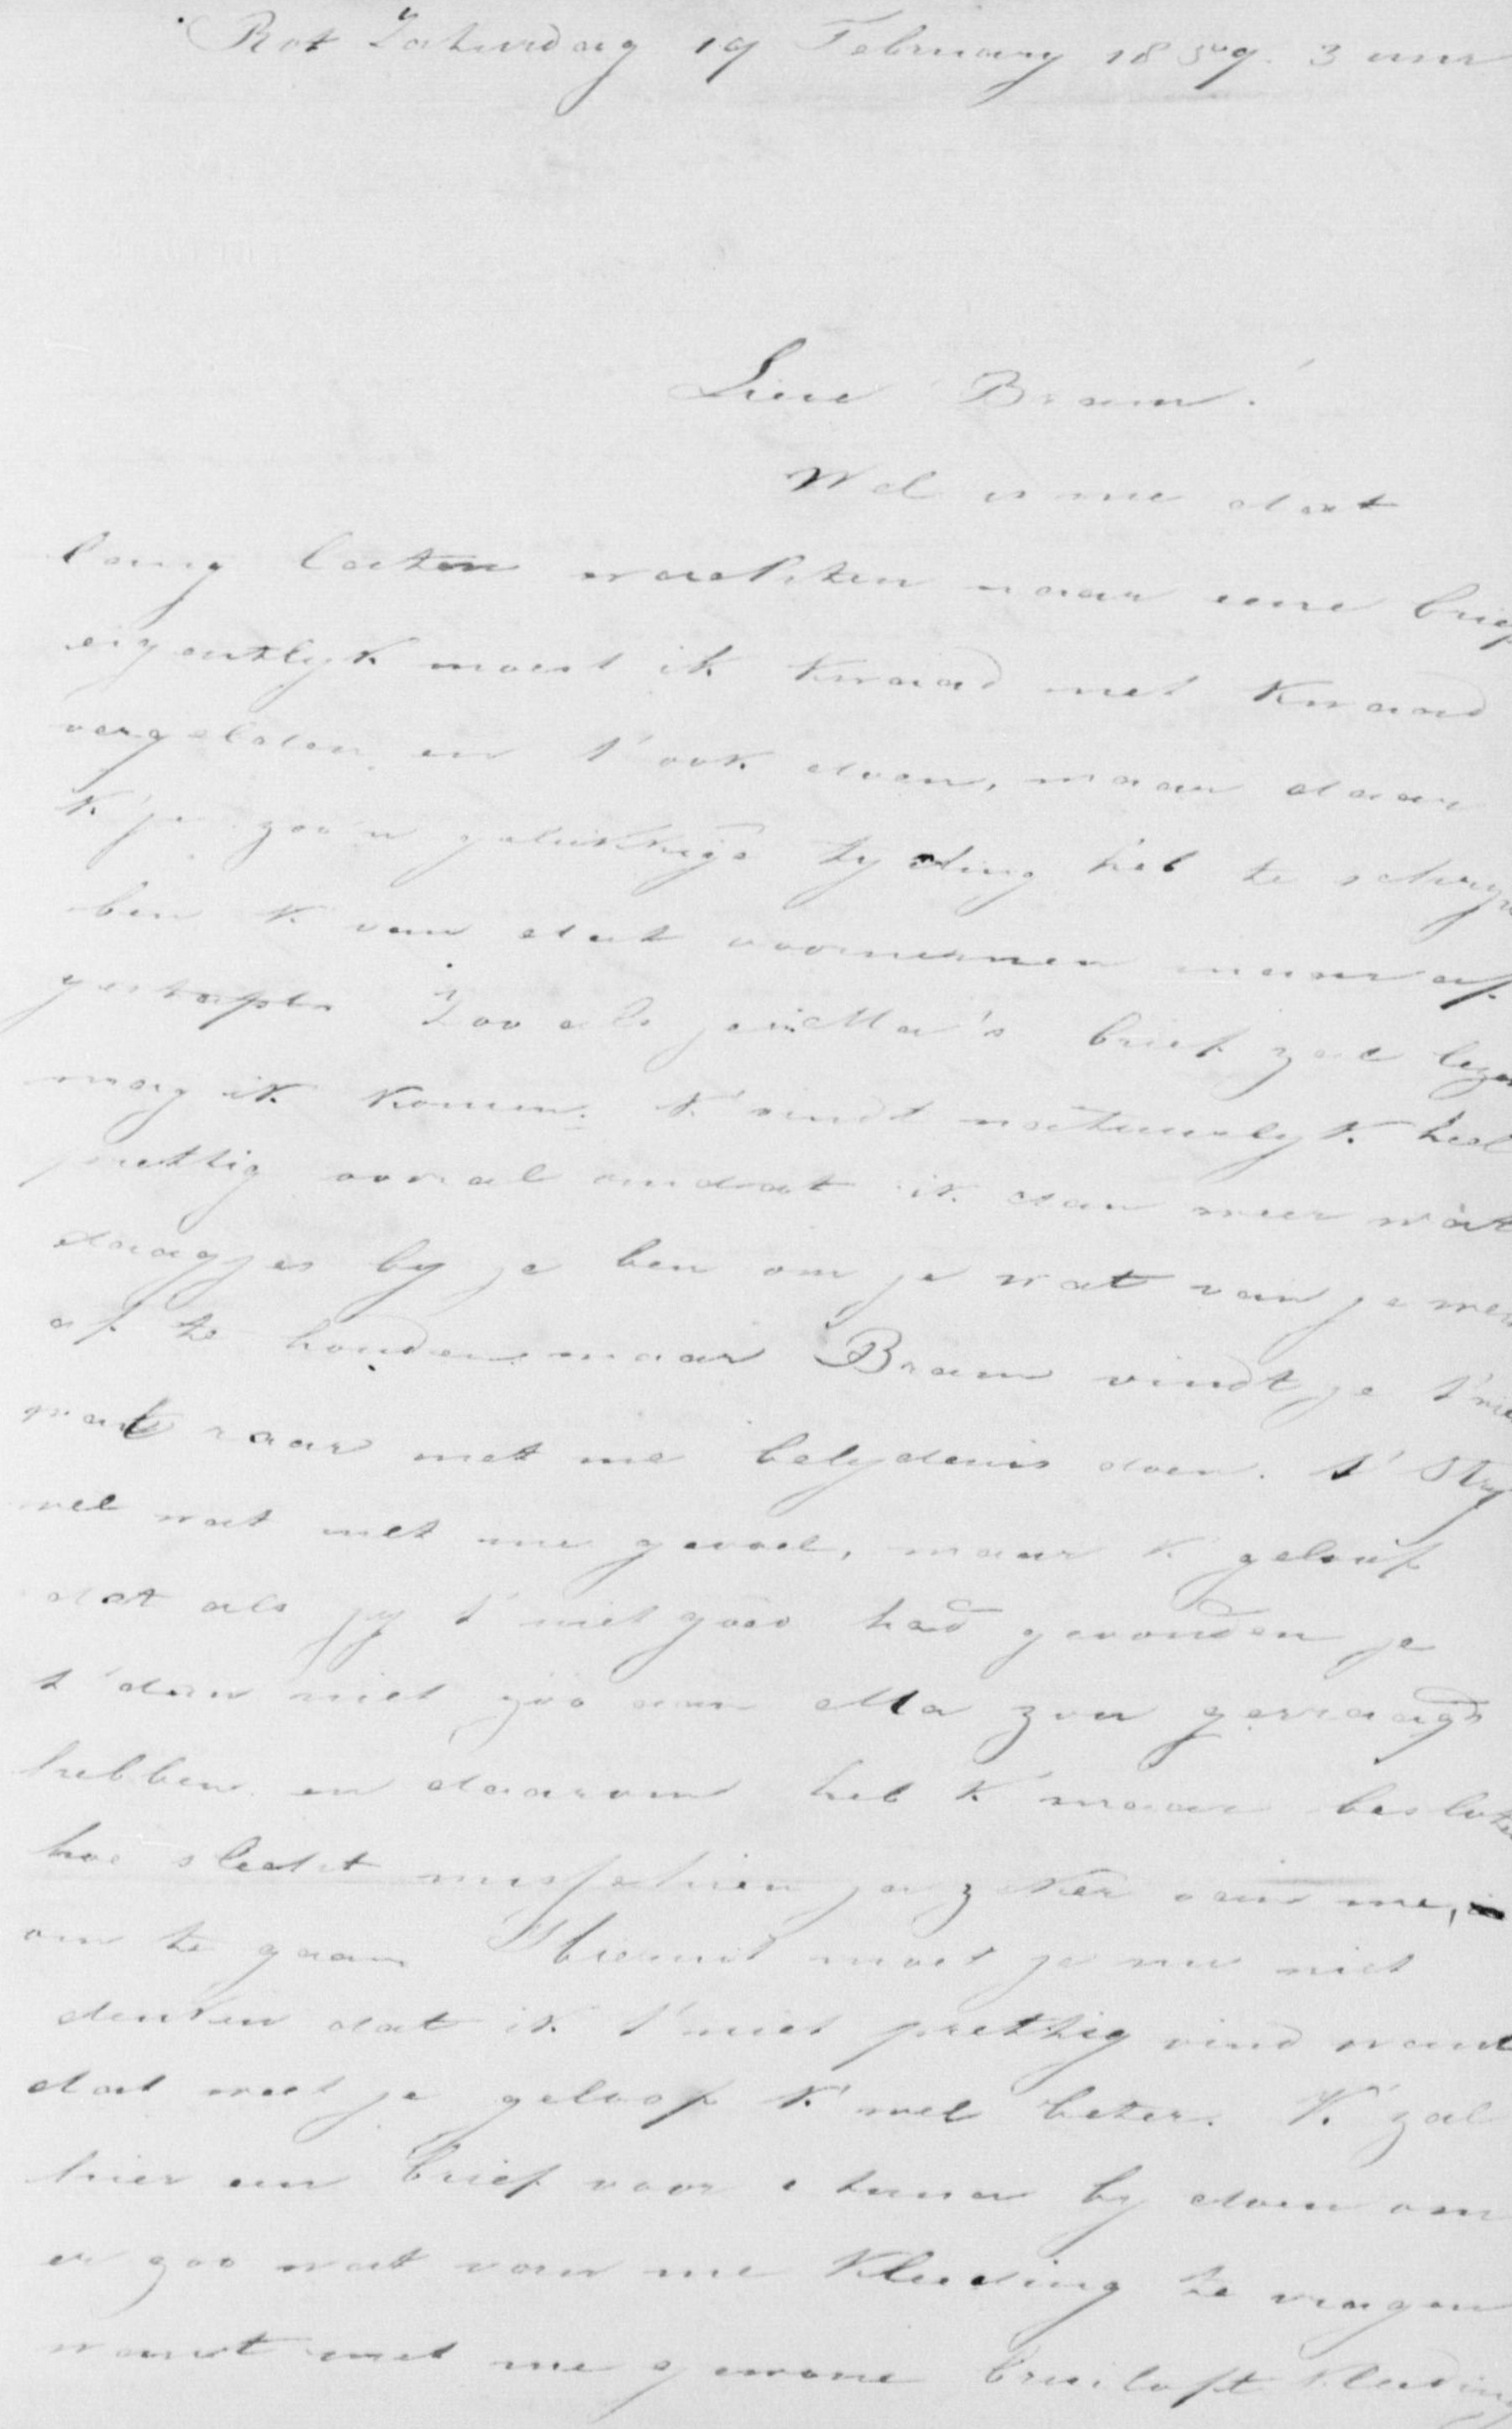 Rot Zaturdag 19 February 1859. 3 uur
Lieve Bram!
Wel is me dat
lang laten wachten naar eene brief
eigentlyk moest ik kwaad met kwaad
vergelden en t' ook doen, maar daar
k' je zoo'n gelukkige tyding heb te schryv
ben k' van dat voornemen maar af
gestapt. Zoo als je in Ma's brief zal lezen
mag ik komen. k' vindt natuurlyk heel
prettig vooral omdat ik dan weer wat
daagjes by je ben om je wat van je werk
af te houden maar Bram vindt je t' niet
wat raar met me belydenis doen. t' Stry
wel wat met me gevoel, maar k' geloof
dat als jy t' niet goed had gevonden je
t' dan niet zoo aan Ma zou gevraagd
hebben en daarom heb k' maar besloten
hoe slecht misschien ja zeker van me,
om te gaan Hieruit moet je nu niet
denken dat ik t' niet prettig vind want
dat weet je geloof k' wel beter. K' zal
hier een brief voor by doen om
er zoo wat van me kleeding te vragen
want met me gewone bruiloft kleeding